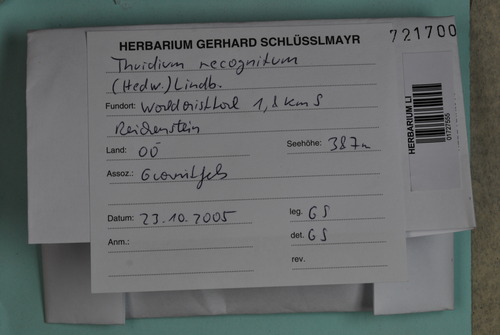 HERBARIUM GERHARD SCHLÜSSLMAYR
721700
Thuidium recognitum
(Hedw.) Lindb.
Fundort: Waldaisttal 1,8 km S
Reichenstein
Land: OÖ
Seehöhe: 387m
Assoz.: Granitfels
Datum: 23.10.2005
leg. GS
Anm.:
det. GS
rev.
HERBARIUM LI